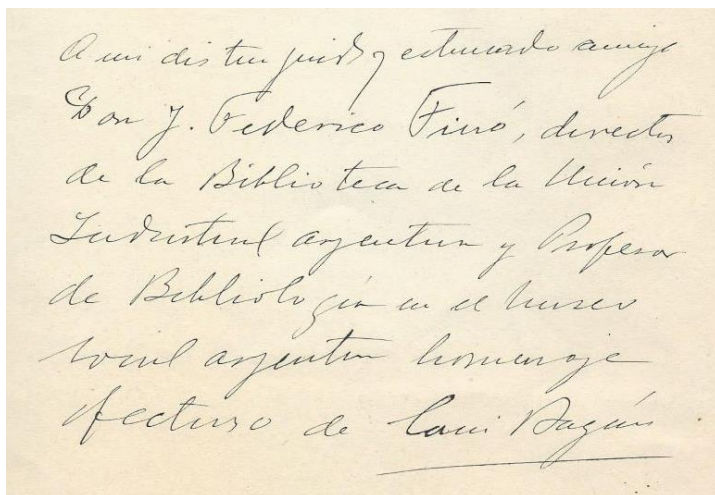 A mi distinguido y estimado amigo
Don J. Federico Finó, director
de la Biblioteca de la Unión
Industrial argentina y Profesor
de Bibliología en el Museo
social argentino homenaje
afectuoso de